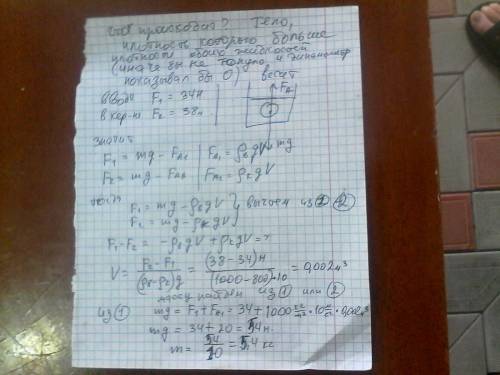 Что происходит? Тело,
плотность которого больше
плотности обоих жидкостей
(иначе бы не тонуло и динамометр
показывал бы 0) весит
в воде F₁ = 34Н
в кер-не F₂ = 38н
Fₐ
mg
значит
F₁ = mg - Fₐ₁ | Fₐ₁ = ρв g V
F₂ = mg - Fₐ₂ | Fₐ₂ = ρк g V
F₁ = mg - ρв gV } вычтем из ① ②
F₂ = mg - ρк gV
F₁ - F₂ = -ρв gV + ρк gV ⇒
V = (F₂ - F₁)/((ρв - ρк)g) = (38 - 34)н/((1000 - 800)·10) = 0,002м³
массу найдем из ① или ②
из ① mg = F₁ + Fₐ₁ = 34 + 1000 кг/м³ · 10 · 0,002м³
mg = 34 + 20 = 54н
m = 54/10 = 5,4 кг